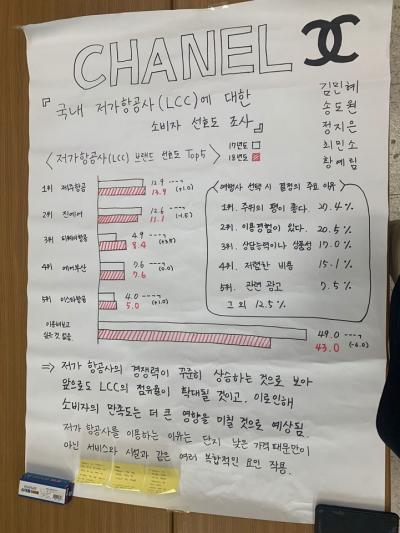 CHANEL
『국내 저가항공사(LCC)에 대한
소비자 선호도 조사』
김민혜
송도원
정지은
최민소
황예림
<저가항공사(LCC) 브랜드 선호도 Top5>
17년도
18년도
1위 제주항공 12.9 13.9 (+1.0)
2위 진에어 12.6 11.1 (-1.5)
3위 티웨이항공 4.9 8.4 (+3.5)
4위 에어부산 7.6 7.6 (0.0)
5위 이스타항공 4.0 5.0 (+1.0)
이용해보고
싶은 것 없음 49.0 43.0 (-6.0)
<여행사 선택 시 결정의 주요 이유>
1위. 주위의 평이 좋다. 27.4%
2위. 이용경험이 있다. 20.5%
3위. 상담능력이나 상품성 17.0%
4위. 저렴한 비용 15.1%
5위. 관련 광고 7.5%
그 외 12.5%
⇒ 저가 항공사의 경쟁력이 꾸준히 상승하는 것으로 보아
앞으로도 LCC의 점유율이 확대될 것이고, 이로인해
소비자의 만족도는 더 큰 영향을 미칠 것으로 예상됨.
저가 항공사를 이용하는 이유는 단지 낮은 가격 때문만이
아닌 서비스와 시설과 같은 여러 복합적인 요인 작용.